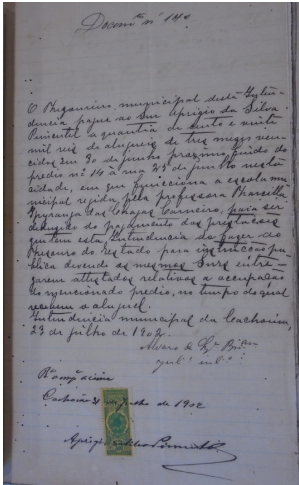 Docum.to nº 140
O Thezoureiro municipal desta Inten-
dencia pague ao Snr Aprigio da Silva
Pimentel a quantia de cento e vinte
mil reis de alugueis de tres mezes ven-
cidos em 30 de junho proximo findo do
predio nº 14 á rua 25 de junho nesta
cidade, em que funcciona a escola mu-
nicipal regida pela professora
das Chagas Carneiro, para ser
do pagamento das prestações
que tem esta Intendencia de fazer ao
Thesouro do Estado para instrucção pu-
blica devendo os mesmos Snres entre-
garem attestados relativos a occupação
do mencionado predio, no tempo do qual
recebem o aluguel.
Intendencia municipal da Cachoeira,
23 de julho de 1902.
Alvaro de
Rs acima
Cachoeira 31 julho de 1902
Aprigio da Silva Pimentel